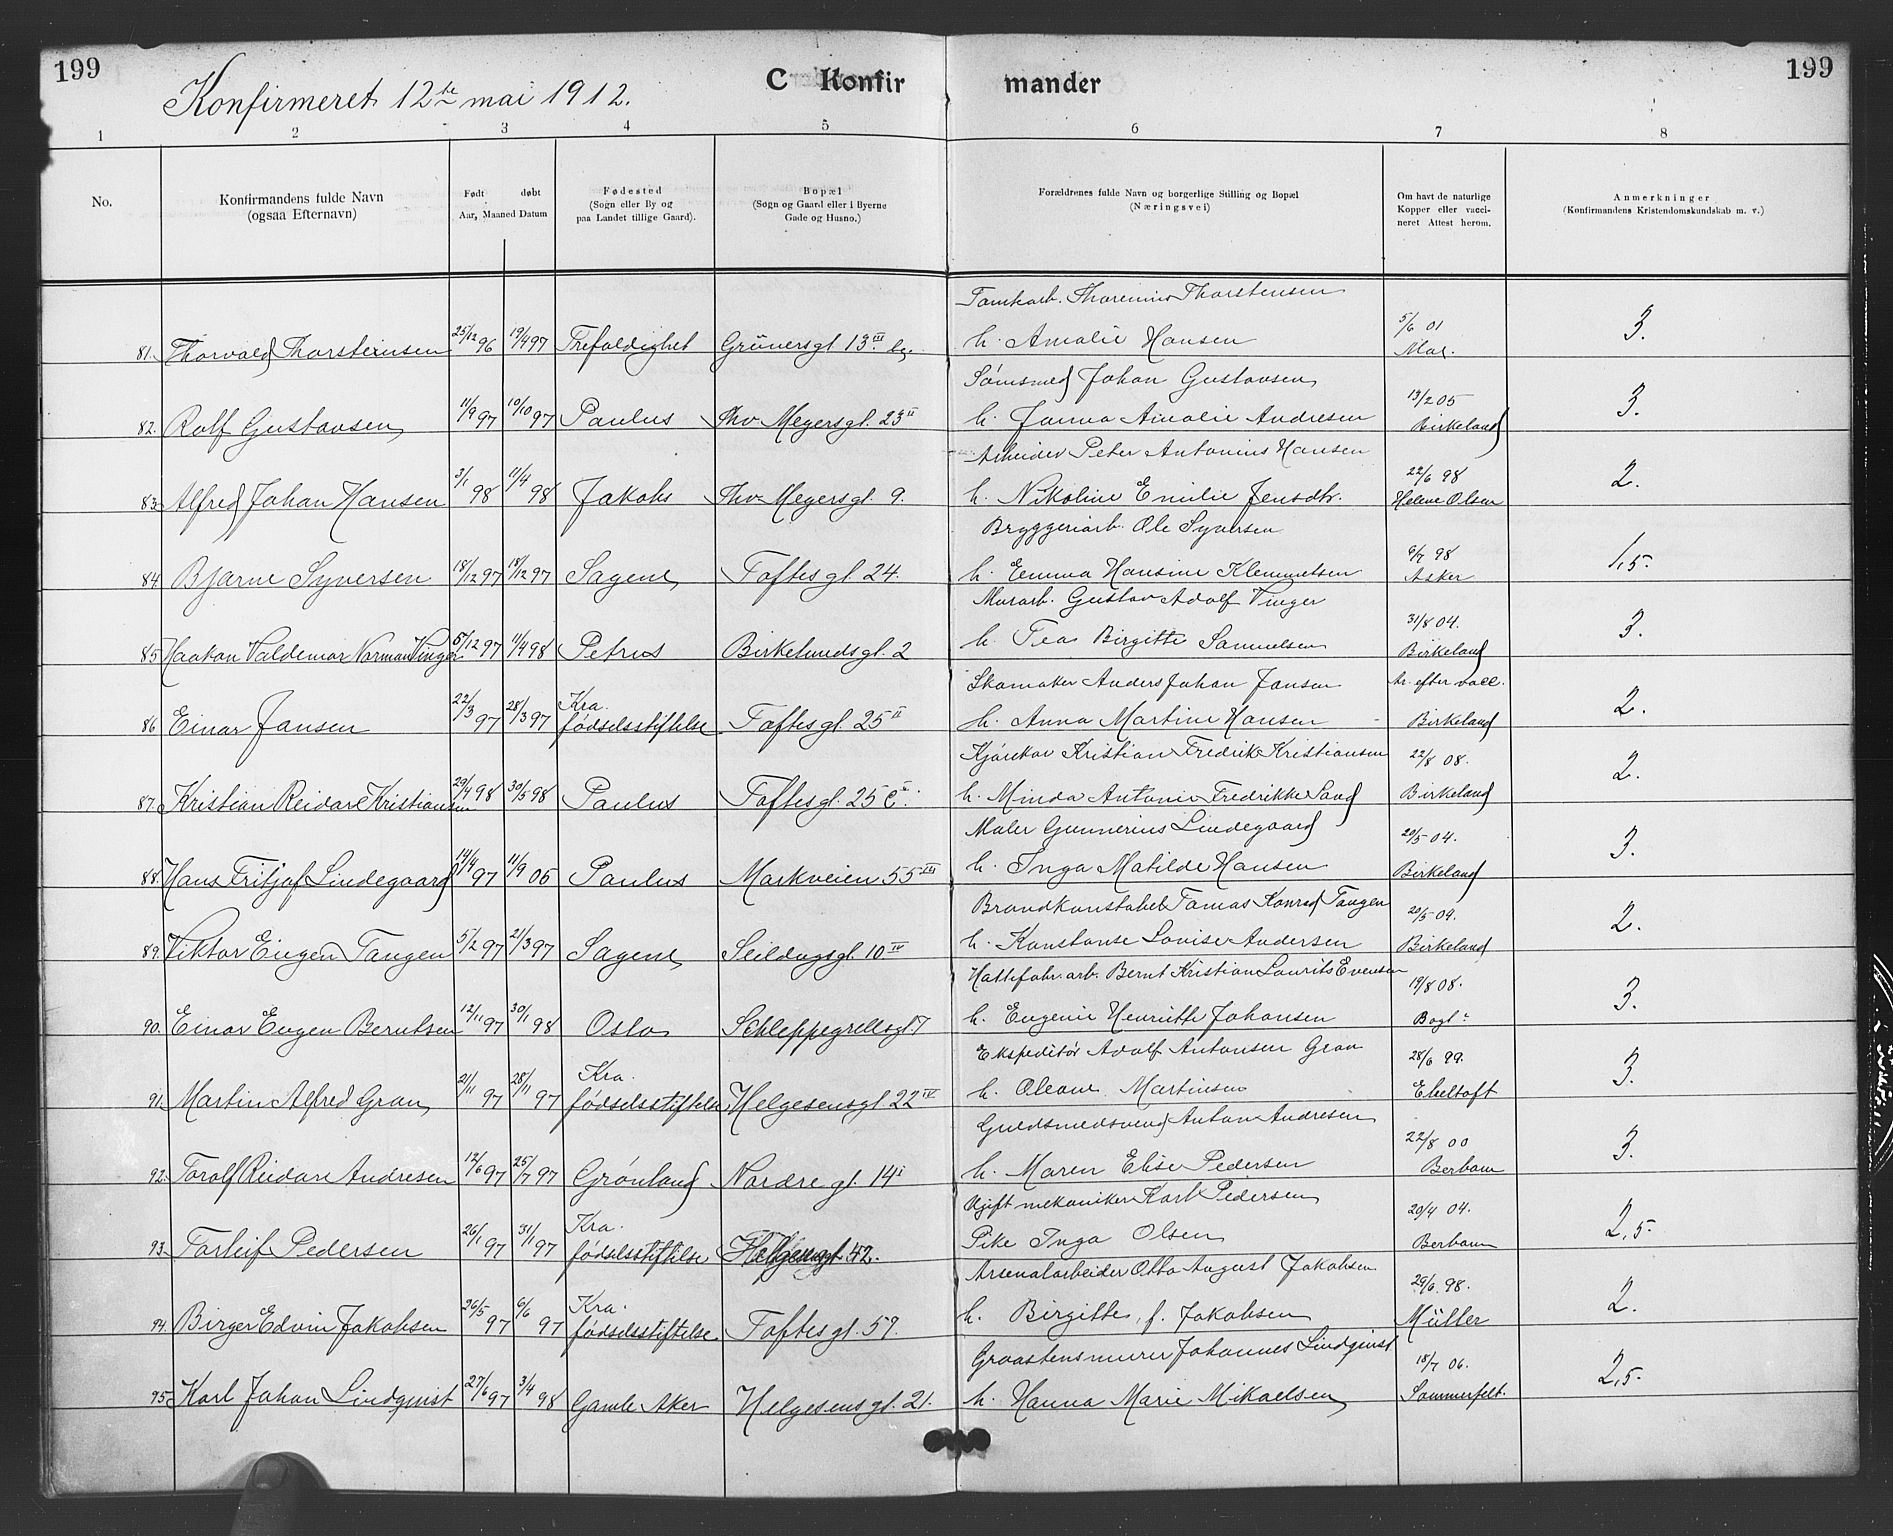 199
Konfirmeret 12te mai 1912.
C Konfir mander
199
1 2 3 4 5 6 7 8
No.
Konfirmandens fulde Navn
(ogsaa Efternavn)
Født døbt
Aar, Maaned Datum
Fødested
(Sogn eller By og
paa Landet tillige Gaard).
Bopæl
(Sogn og Gaard eller i Byerne
Gade og Husno.)
Forældrenes fulde Navn og borgerlige Stilling og Bopæl
(Næringsvei)
Om havt de naturlige
Kopper eller vacci-
neret Attest herom.
Anmerkninger
(Konfirmandens Kristendomskundskab m. v.)
Thorenius Thorstensen
81. Thorvald Thorsteinsen 25/12 96 19/4 97 Trefoldighet Grünersgt 13 III h. Amalie Hansen 5/6 01 3.
Sømsmed Johan Gustavsen
82. Rolf Gustavsen 11/9 97 10/10 97 Paulus Thv Meyersgt. 23 II h. Janna Amalie Andresen 13/2 05 Birkeland 3.
Arbeider Peter Antonius Hansen
83. Alfred Johan Hansen 3/1 98 11/4 98 Jakobs Thv Meyersgt. 9. h. Nikoline Emilie Jensdtr. 22/6 98 Helene Olsen 2.
Bryggeriarb. Ole Syversen
84. Bjarne Syversen 18/12 97 18/12 97 Sagene Toftesgt. 24. h. Emma Hansine Klemmetsen 6/7 98 Asker 1,5-
Murarb. Gustav Adolf Vinger
85. Haakon Valdemar Norman Vinger 5/12 97 11/4 98 Petrus Birkelundsgt. 2 h. Tea Birgitte Samuelsen 31/8 04. Birkeland 3.
Skomaker Anders Johan Jansen
86. Einar Jansen 22/3 97 28/3 97 Kra. fødselsstiftelse Toftesgt. 25 II h. Anna Martine Hansen Ar. efter vacc. Birkeland 2.
Kjørekar Kristian Fredrik Kristiansen
87. Kristian Reidar Kristiansen 29/4 98 30/5 98 Paulus Toftesgt. 25 C h. Minda Antonie Fredrikke Sand 22/8 08. Birkeland 2.
Maler Gunnerius Lindegaard
88. Hans Fritjof Lindegaard 14/4 97 11/9 05 Paulus Markveien 55 III h. Inga Matilde Hansen 20/5-04. Birkeland 3.
Brandkonstabel Tomas Konrad Tangen
89. Viktor Eugen Tangen 5/2 97 21/3 97 Sagene Seildugsgt. 10 IV h. Konstanse Lovise Andersen 20/5-04. Birkeland 2.
Hattefabr. arb. Bernt Kristian Laurits Evensen
90. Einar Eugen Berntsen 12/11 97 30/1 98 Oslo Schleppegrellsgt. 7 h. Eugenie Henriette Johansen 19/8 08. 3.
Ekspeditør Adolf Antonsen Gran
91. Martin Alfred Gran 21/11 97 28/11 97 Kra. fødselsstiftelse Helgesensgt. 22 IV h. Oleane Martinsen 28/6 99. Ebeltoft 3.
Guldsmedsvend Anton Andresen
92. Torolf Reidar Andresen 12/6 97 25/7 97 Grønland Nordre gt. 14 h. Maren Elise Pedersen 22/8 00 Berbom 3.
Ugift mekaniker Karl Pedersen
93. Torleif Pedersen 26/1 97 31/1 97 Kra. fødselsstiftelse Pike Inga Olsen 20/4 04. Berbom 2,5-
Arsenalarbeider Otto August Jakobsen
94. Birger Edvin Jakobsen 26/5 97 6/6 97 Kra. fødselsstiftelse Toftesgt. 59. h. Birgitte, f. Jakobsen 29/6 98. Müller 2.
Graastensmurer Johannes Lindqvist
95. Karl Johan Lindqvist 27/6 97 3/4 98 Gamle Aker Helgesensgt. 21. h. Hanna Marie Mikaelsen 18/7 06. Sommerfelt. 2,5-